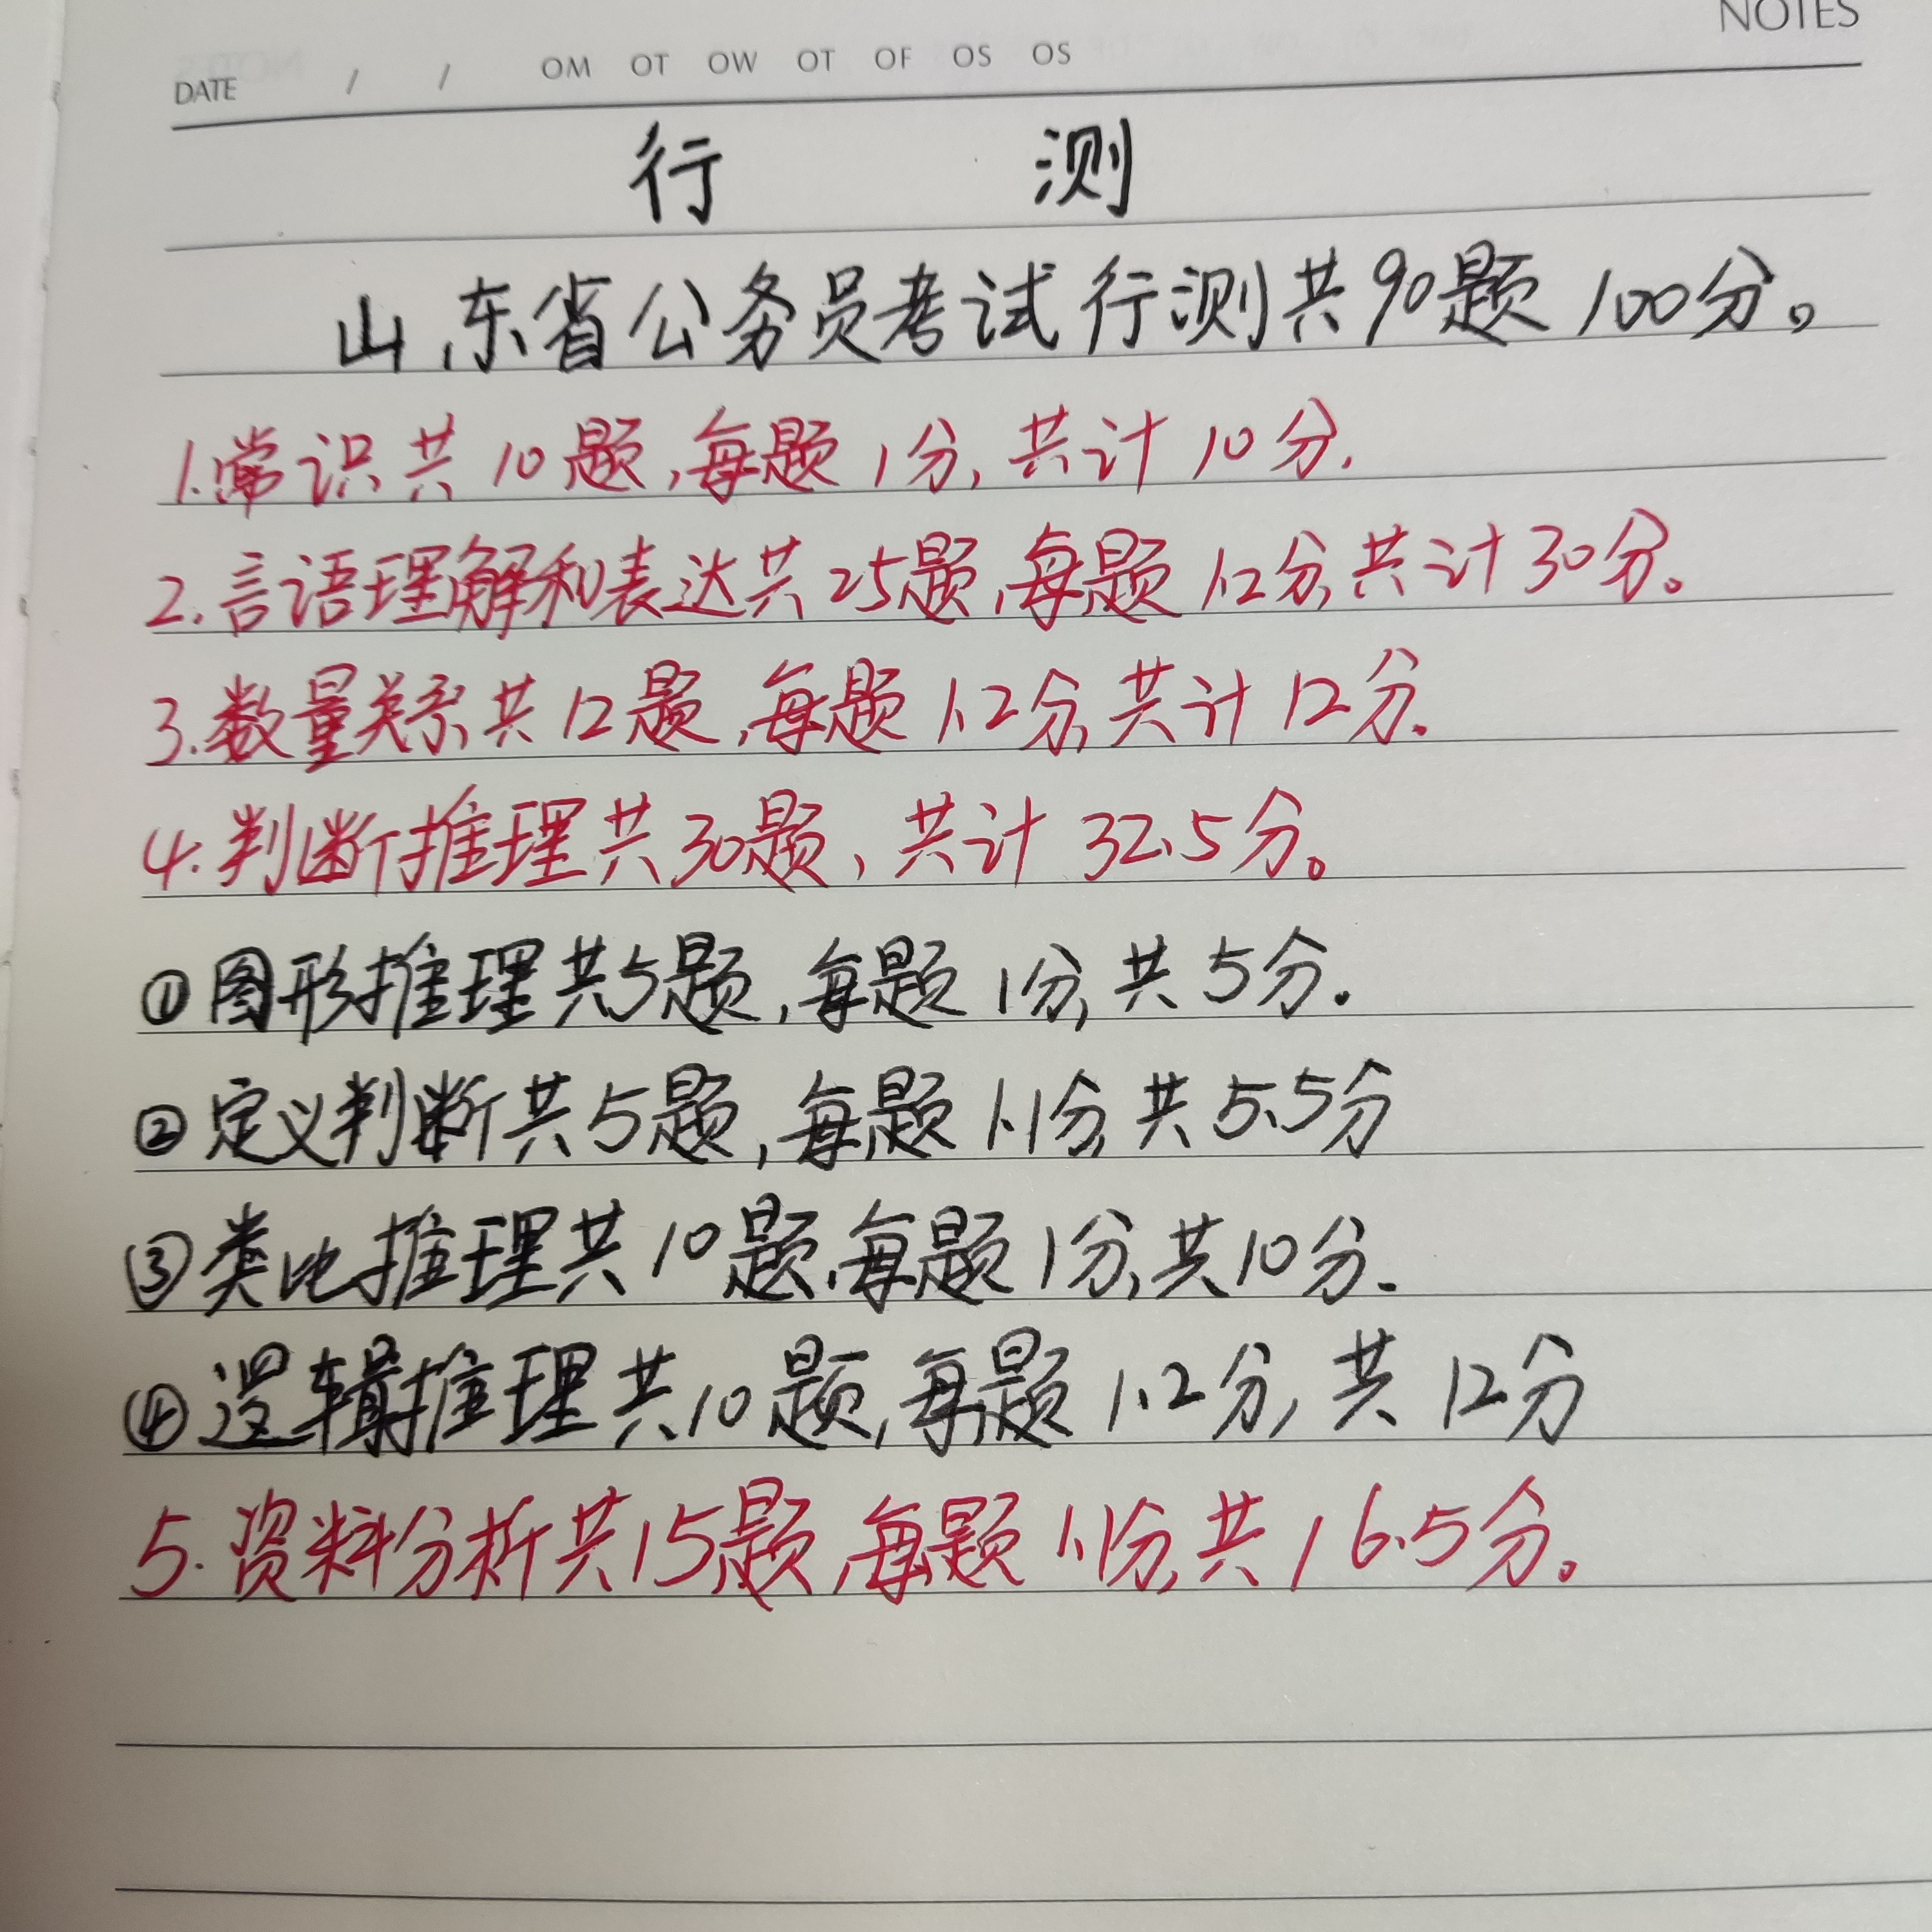 NOTES
DATE / / OM OT OW OT OF OS OS
行 测
山东省公务员考试行测共90题 100分。
1.常识共10题,每题1分,共计10分.
2.言语理解和表达共25题,每题1.2分,共计30分。
3.数量关系共12题,每题1.2分,共计12分.
4.判断推理共30题、共计32.5分。
①图形推理共5题,每题1分,共5分.
②定义判断共5题,每题1.1分,共5.5分
③类比推理共10题,每题1分,共10分.
④逻辑推理共10题,每题1.2分,共12分
5.资料分析共15题,每题1.1分,共16.5分。